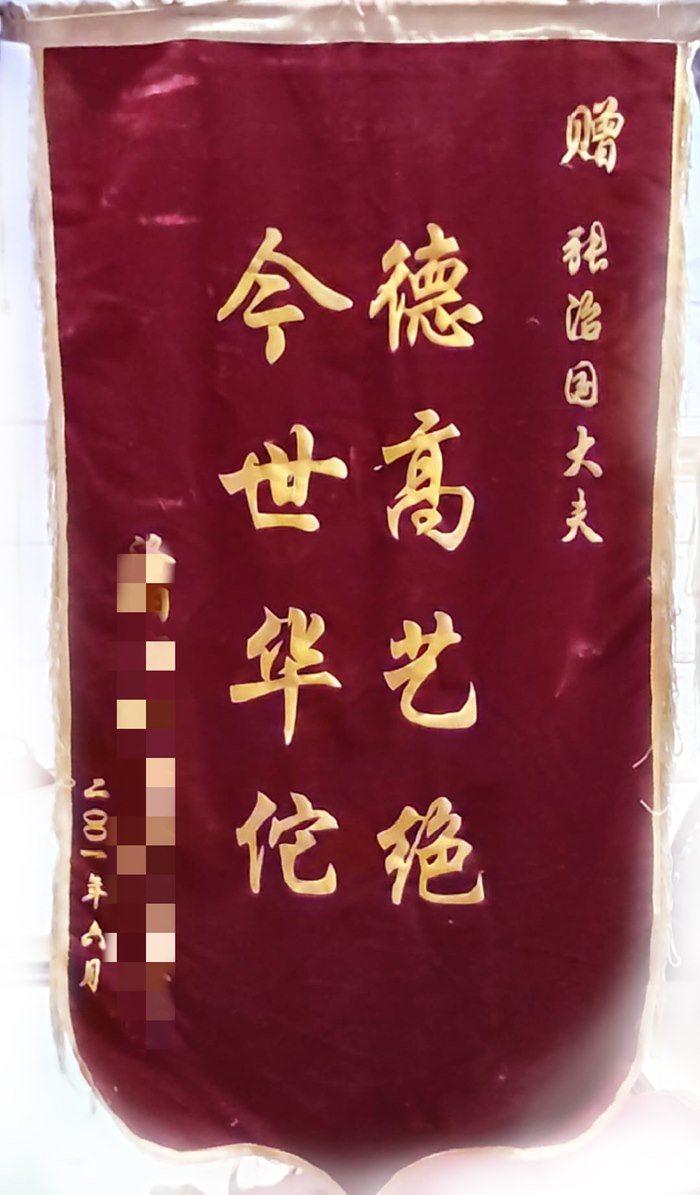 赠 张治国大夫
德高艺绝
今世华佗
二〇〇一年六月